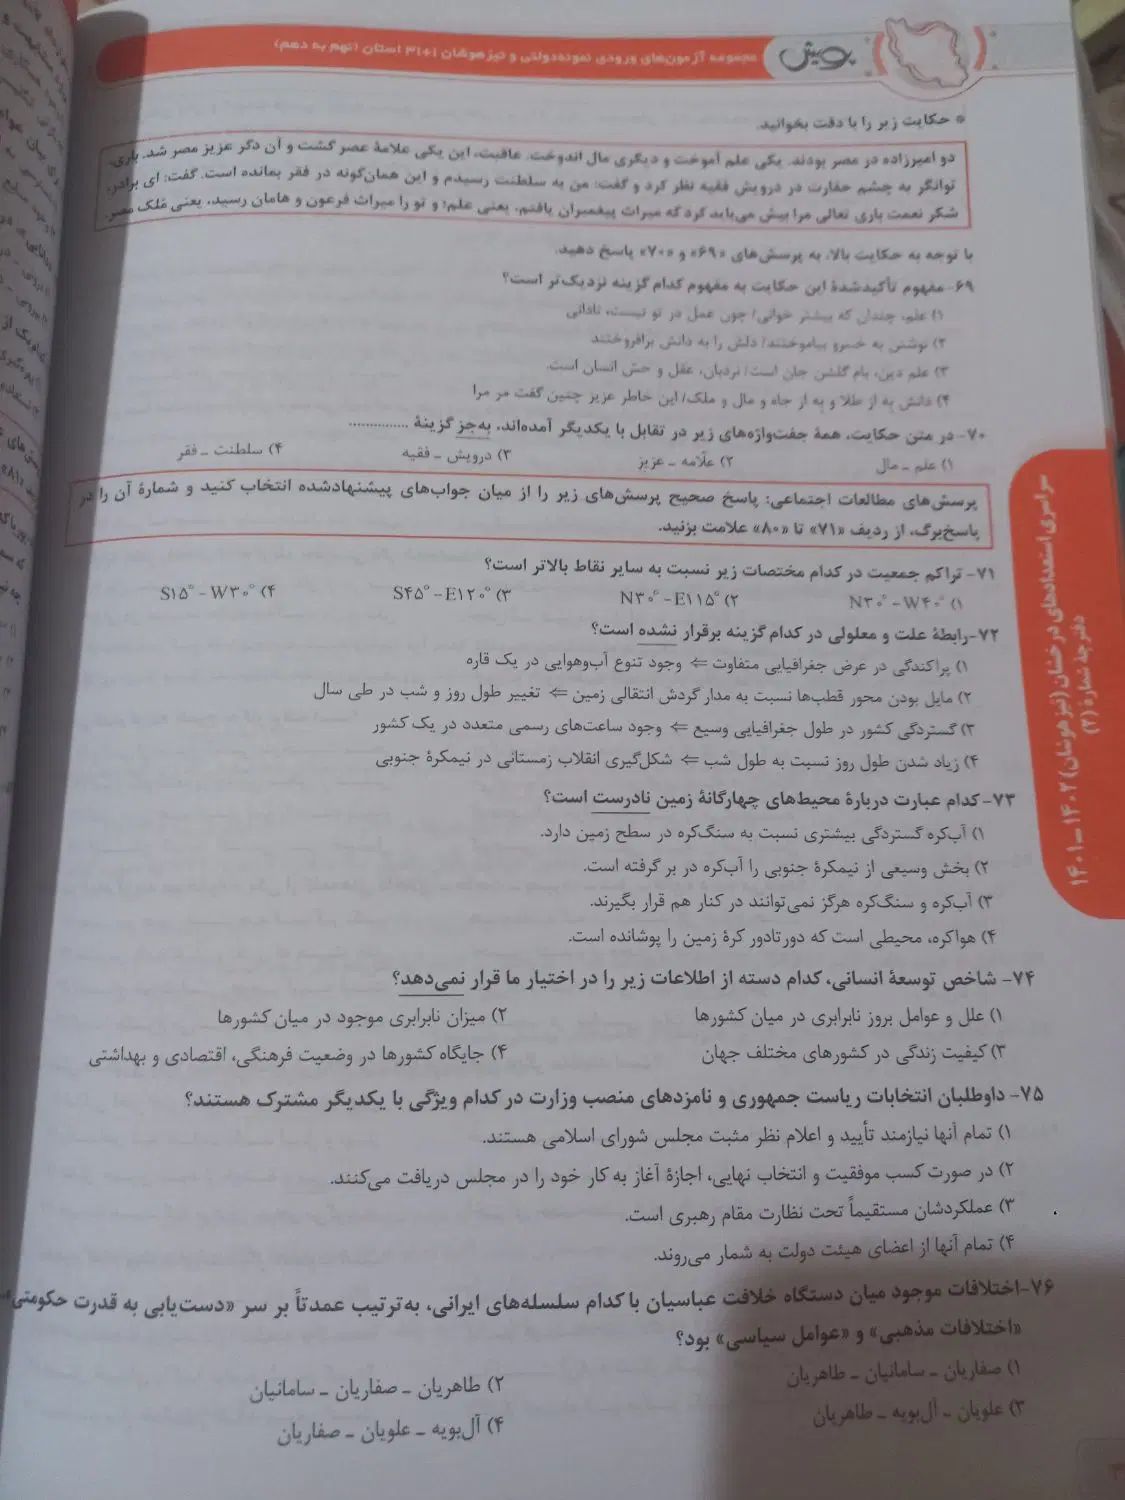 پویش
مجموعه آزمون‌های ورودی نمونه‌دولتی و تیزهوشان ۳۱+۱ استان (نهم به دهم)
* حکایت زیر را با دقت بخوانید.
دو امیرزاده در مصر بودند. یکی علم آموخت و دیگری مال اندوخت. عاقبت، این یکی علامهٔ عصر گشت و آن دگر عزیز مصر شد. باری،
توانگر به چشم حقارت در درویش فقیه نظر کرد و گفت: من به سلطنت رسیدم و این همان‌گونه در فقر بمانده است. گفت: ای برادر،
شکر نعمت باری تعالی مرا بیش می‌باید کرد که میراث پیغمبران یافتم، یعنی علم؛ و تو را میراث فرعون و هامان رسید، یعنی مُلک مصر.
با توجه به حکایت بالا، به پرسش‌های «۶۹» و «۷۰» پاسخ دهید.
۶۹- مفهوم تأکیدشدهٔ این حکایت به مفهوم کدام گزینه نزدیک‌تر است؟
۱) علم، چندان که بیشتر خوانی/ چون عمل در تو نیست، نادانی
۲) نوشتن به خسرو بیاموختند/ دلش را به دانش برافروختند
۳) علم دین، بام گلشن جان است/ نردبان، عقل و حس انسان است.
۴) دانش به از طلا و به از جاه و مال و ملک/ این خاطر عزیز چنین گفت مر مرا
۷۰- در متن حکایت، همهٔ جفت‌واژه‌های زیر در تقابل با یکدیگر آمده‌اند، به‌جز گزینهٔ ..............
۱) علم ـ مال ۲) علّامه ـ عزیز ۳) درویش ـ فقیه ۴) سلطنت ـ فقر
پرسش‌های مطالعات اجتماعی: پاسخ صحیح پرسش‌های زیر را از میان جواب‌های پیشنهادشده انتخاب کنید و شمارهٔ آن را در
پاسخ‌برگ، از ردیف «۷۱» تا «۸۰» علامت بزنید.
۷۱- تراکم جمعیت در کدام مختصات زیر نسبت به سایر نقاط بالاتر است؟
۱) N۳۰° - W۴۰° ۲) N۳۰° - E۱۱۵° ۳) S۴۵° - E۱۲۰° ۴) S۱۵° - W۳۰°
۷۲-رابطهٔ علت و معلولی در کدام گزینه برقرار نشده است؟
۱) پراکندگی در عرض جغرافیایی متفاوت ⇐ وجود تنوع آب‌وهوایی در یک قاره
۲) مایل بودن محور قطب‌ها نسبت به مدار گردش انتقالی زمین ⇐ تغییر طول روز و شب در طی سال
۳) گستردگی کشور در طول جغرافیایی وسیع ⇐ وجود ساعت‌های رسمی متعدد در یک کشور
۴) زیاد شدن طول روز نسبت به طول شب ⇐ شکل‌گیری انقلاب زمستانی در نیمکرهٔ جنوبی
۷۳- کدام عبارت دربارهٔ محیط‌های چهارگانهٔ زمین نادرست است؟
۱) آب‌کره گستردگی بیشتری نسبت به سنگ‌کره در سطح زمین دارد.
۲) بخش وسیعی از نیمکرهٔ جنوبی را آب‌کره در بر گرفته است.
۳) آب‌کره و سنگ‌کره هرگز نمی‌توانند در کنار هم قرار بگیرند.
۴) هواکره، محیطی است که دورتادور کرهٔ زمین را پوشانده است.
۷۴- شاخص توسعهٔ انسانی، کدام دسته از اطلاعات زیر را در اختیار ما قرار نمی‌دهد؟
۱) علل و عوامل بروز نابرابری در میان کشورها ۲) میزان نابرابری موجود در میان کشورها
۳) کیفیت زندگی در کشورهای مختلف جهان ۴) جایگاه کشورها در وضعیت فرهنگی، اقتصادی و بهداشتی
۷۵- داوطلبان انتخابات ریاست جمهوری و نامزدهای منصب وزارت در کدام ویژگی با یکدیگر مشترک هستند؟
۱) تمام آنها نیازمند تأیید و اعلام نظر مثبت مجلس شورای اسلامی هستند.
۲) در صورت کسب موفقیت و انتخاب نهایی، اجازهٔ آغاز به کار خود را در مجلس دریافت می‌کنند.
۳) عملکردشان مستقیماً تحت نظارت مقام رهبری است.
۴) تمام آنها از اعضای هیئت دولت به شمار می‌روند.
۷۶-اختلافات موجود میان دستگاه خلافت عباسیان با کدام سلسله‌های ایرانی، به‌ترتیب عمدتاً بر سر «دست‌یابی به قدرت حکومتی»،
«اختلافات مذهبی» و «عوامل سیاسی» بود؟
۱) صفاریان ـ سامانیان ـ طاهریان ۲) طاهریان ـ صفاریان ـ سامانیان
۳) علویان ـ آل‌بویه ـ طاهریان ۴) آل‌بویه ـ علویان ـ صفاریان
سراسری استعدادهای درخشان (تیزهوشان) ۱۴۰۲ـ۱۴۰۱
دفترچهٔ شمارهٔ (۲)